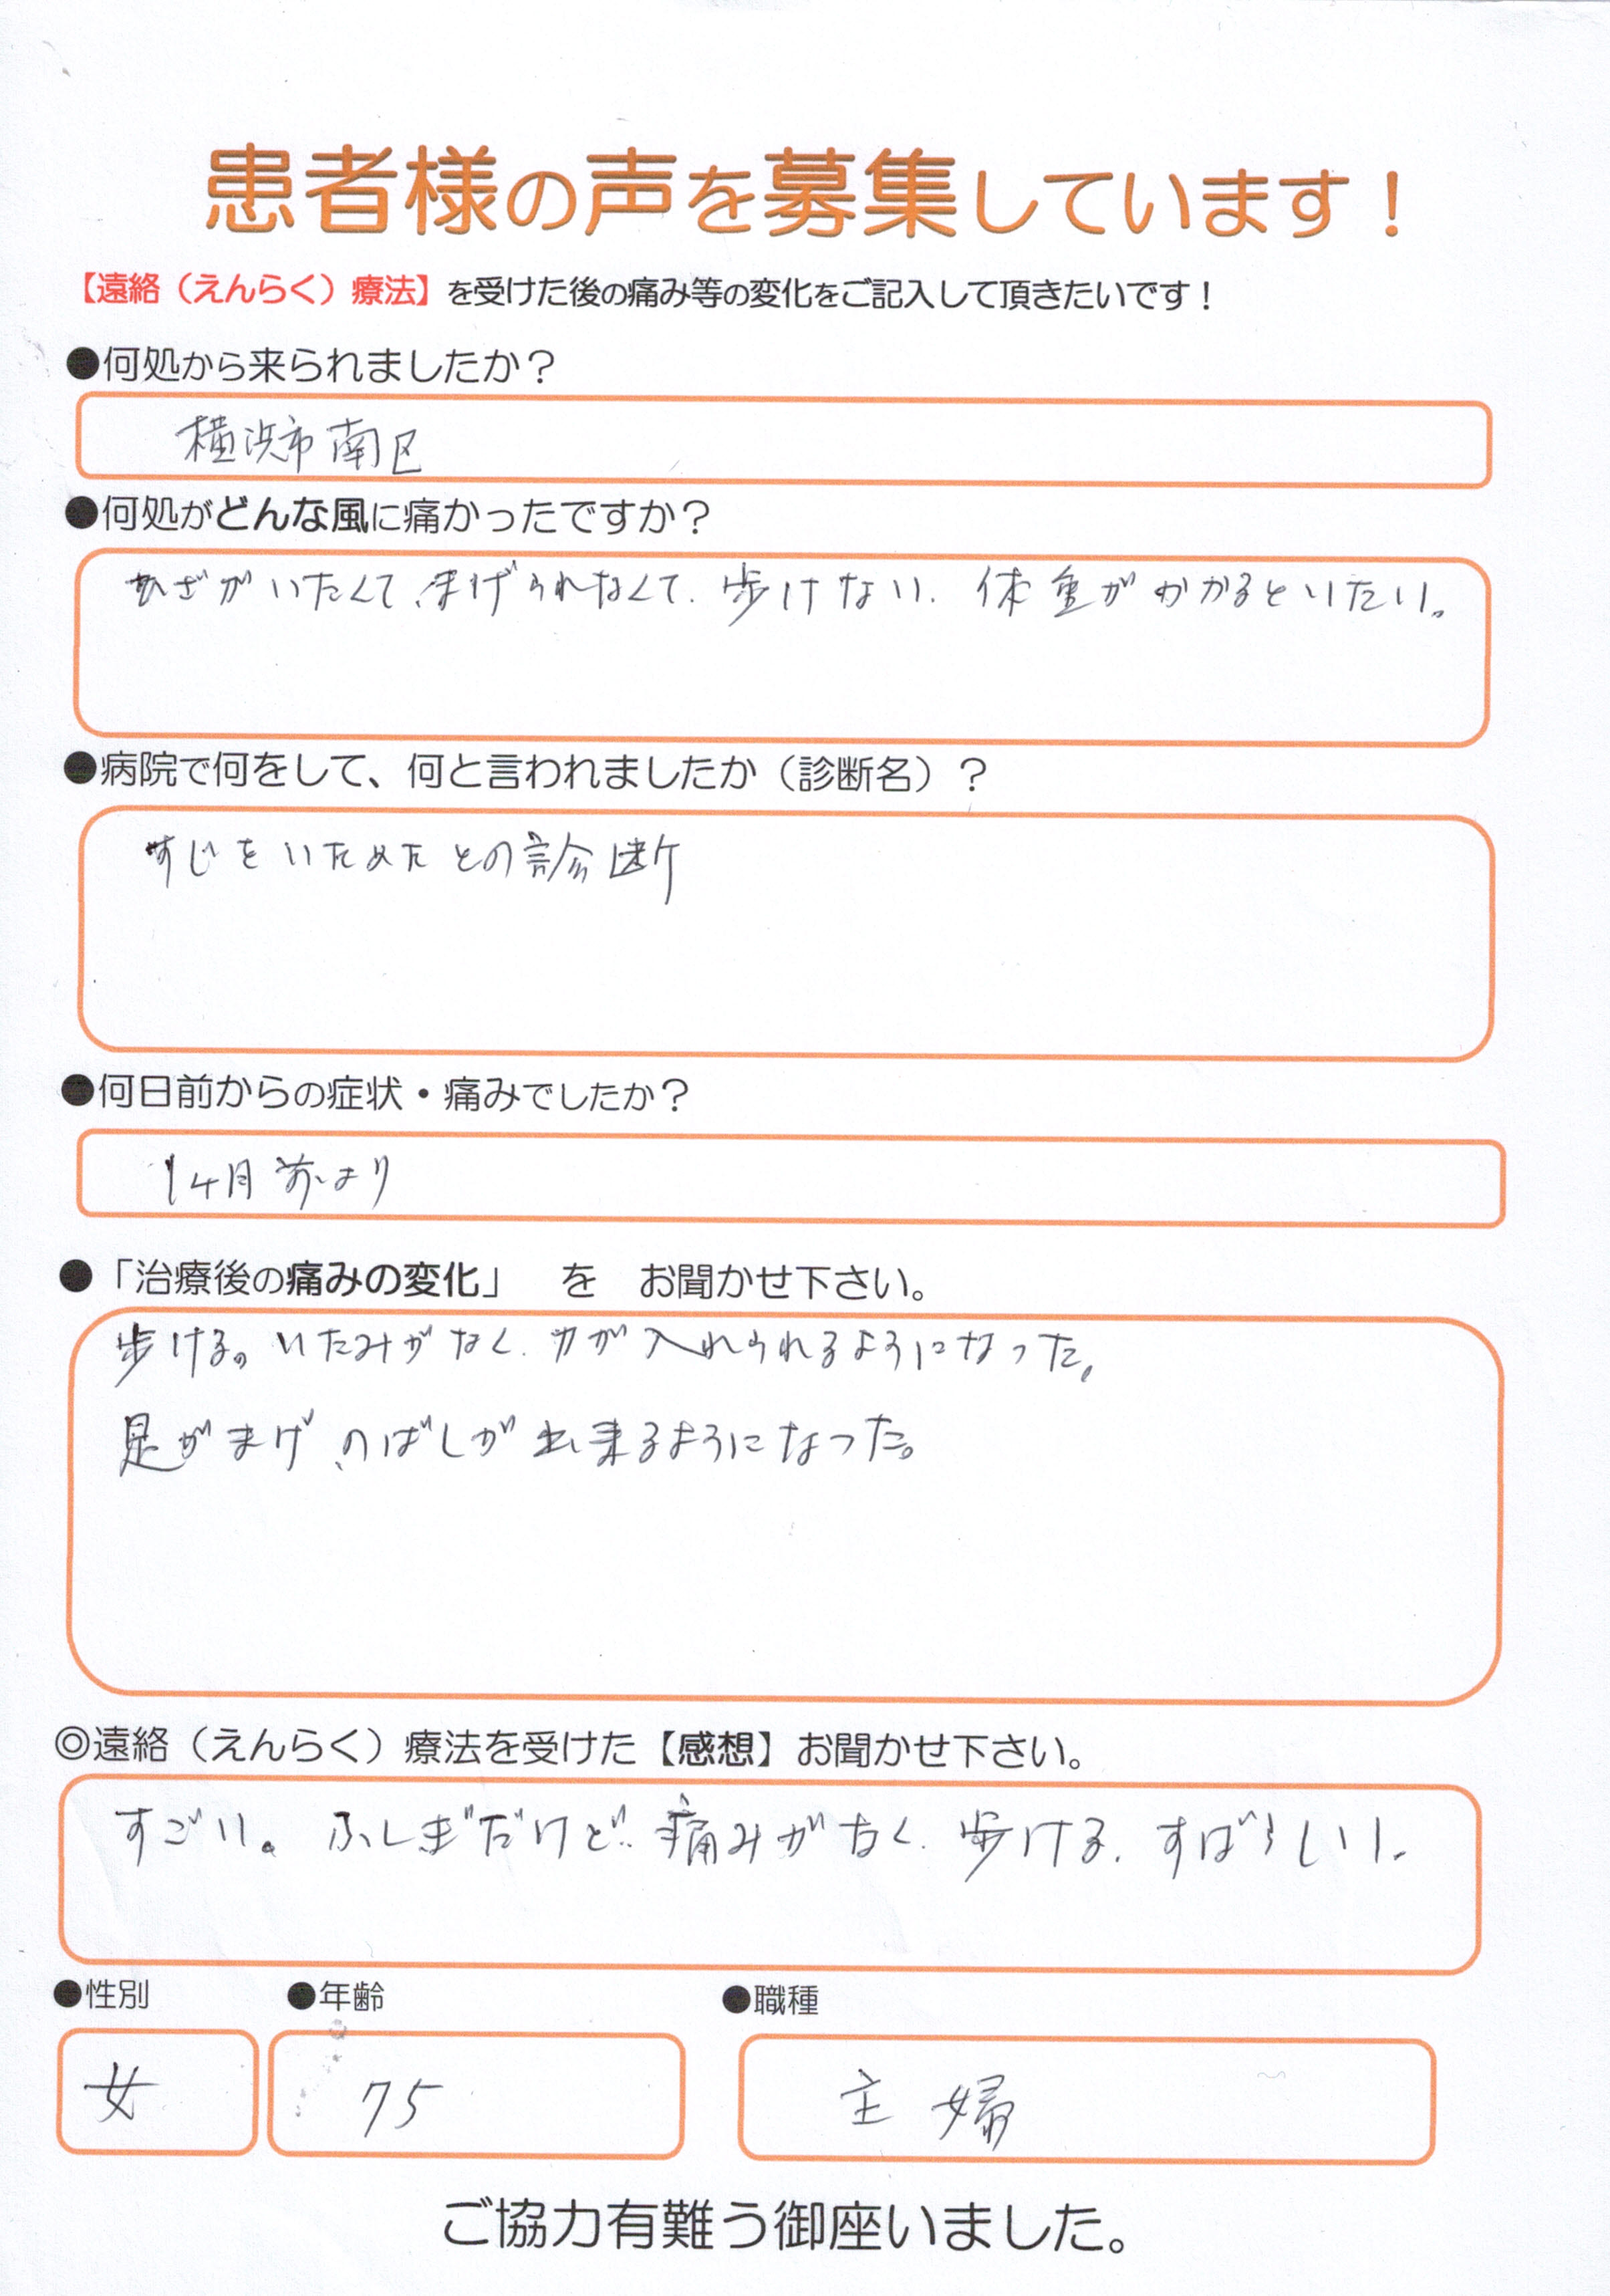 患者様の声を募集しています!
【遠絡（えんらく）療法】を受けた後の痛み等の変化をご記入して頂きたいです!
●何処から来られましたか?
横浜市南区
●何処がどんな風に痛かったですか?
ひざがいたくて、まげられなくて、歩けない、体重がかかるといたい。
●病院で何をして、何と言われましたか（診断名）?
すじをいためたとの診断
●何日前からの症状・痛みでしたか?
1ヶ月前より
●「治療後の痛みの変化」 を お聞かせ下さい。
歩ける。いたみがなく、力が入れられるようになった。
足がまげ、のばしが出来るようになった。
◎遠絡（えんらく）療法を受けた【感想】お聞かせ下さい。
すごい。ふしぎだけど、痛みがなく、歩ける、すばらしい。
●性別 ●年齢 ●職種
女 75 主婦
ご協力有難う御座いました。